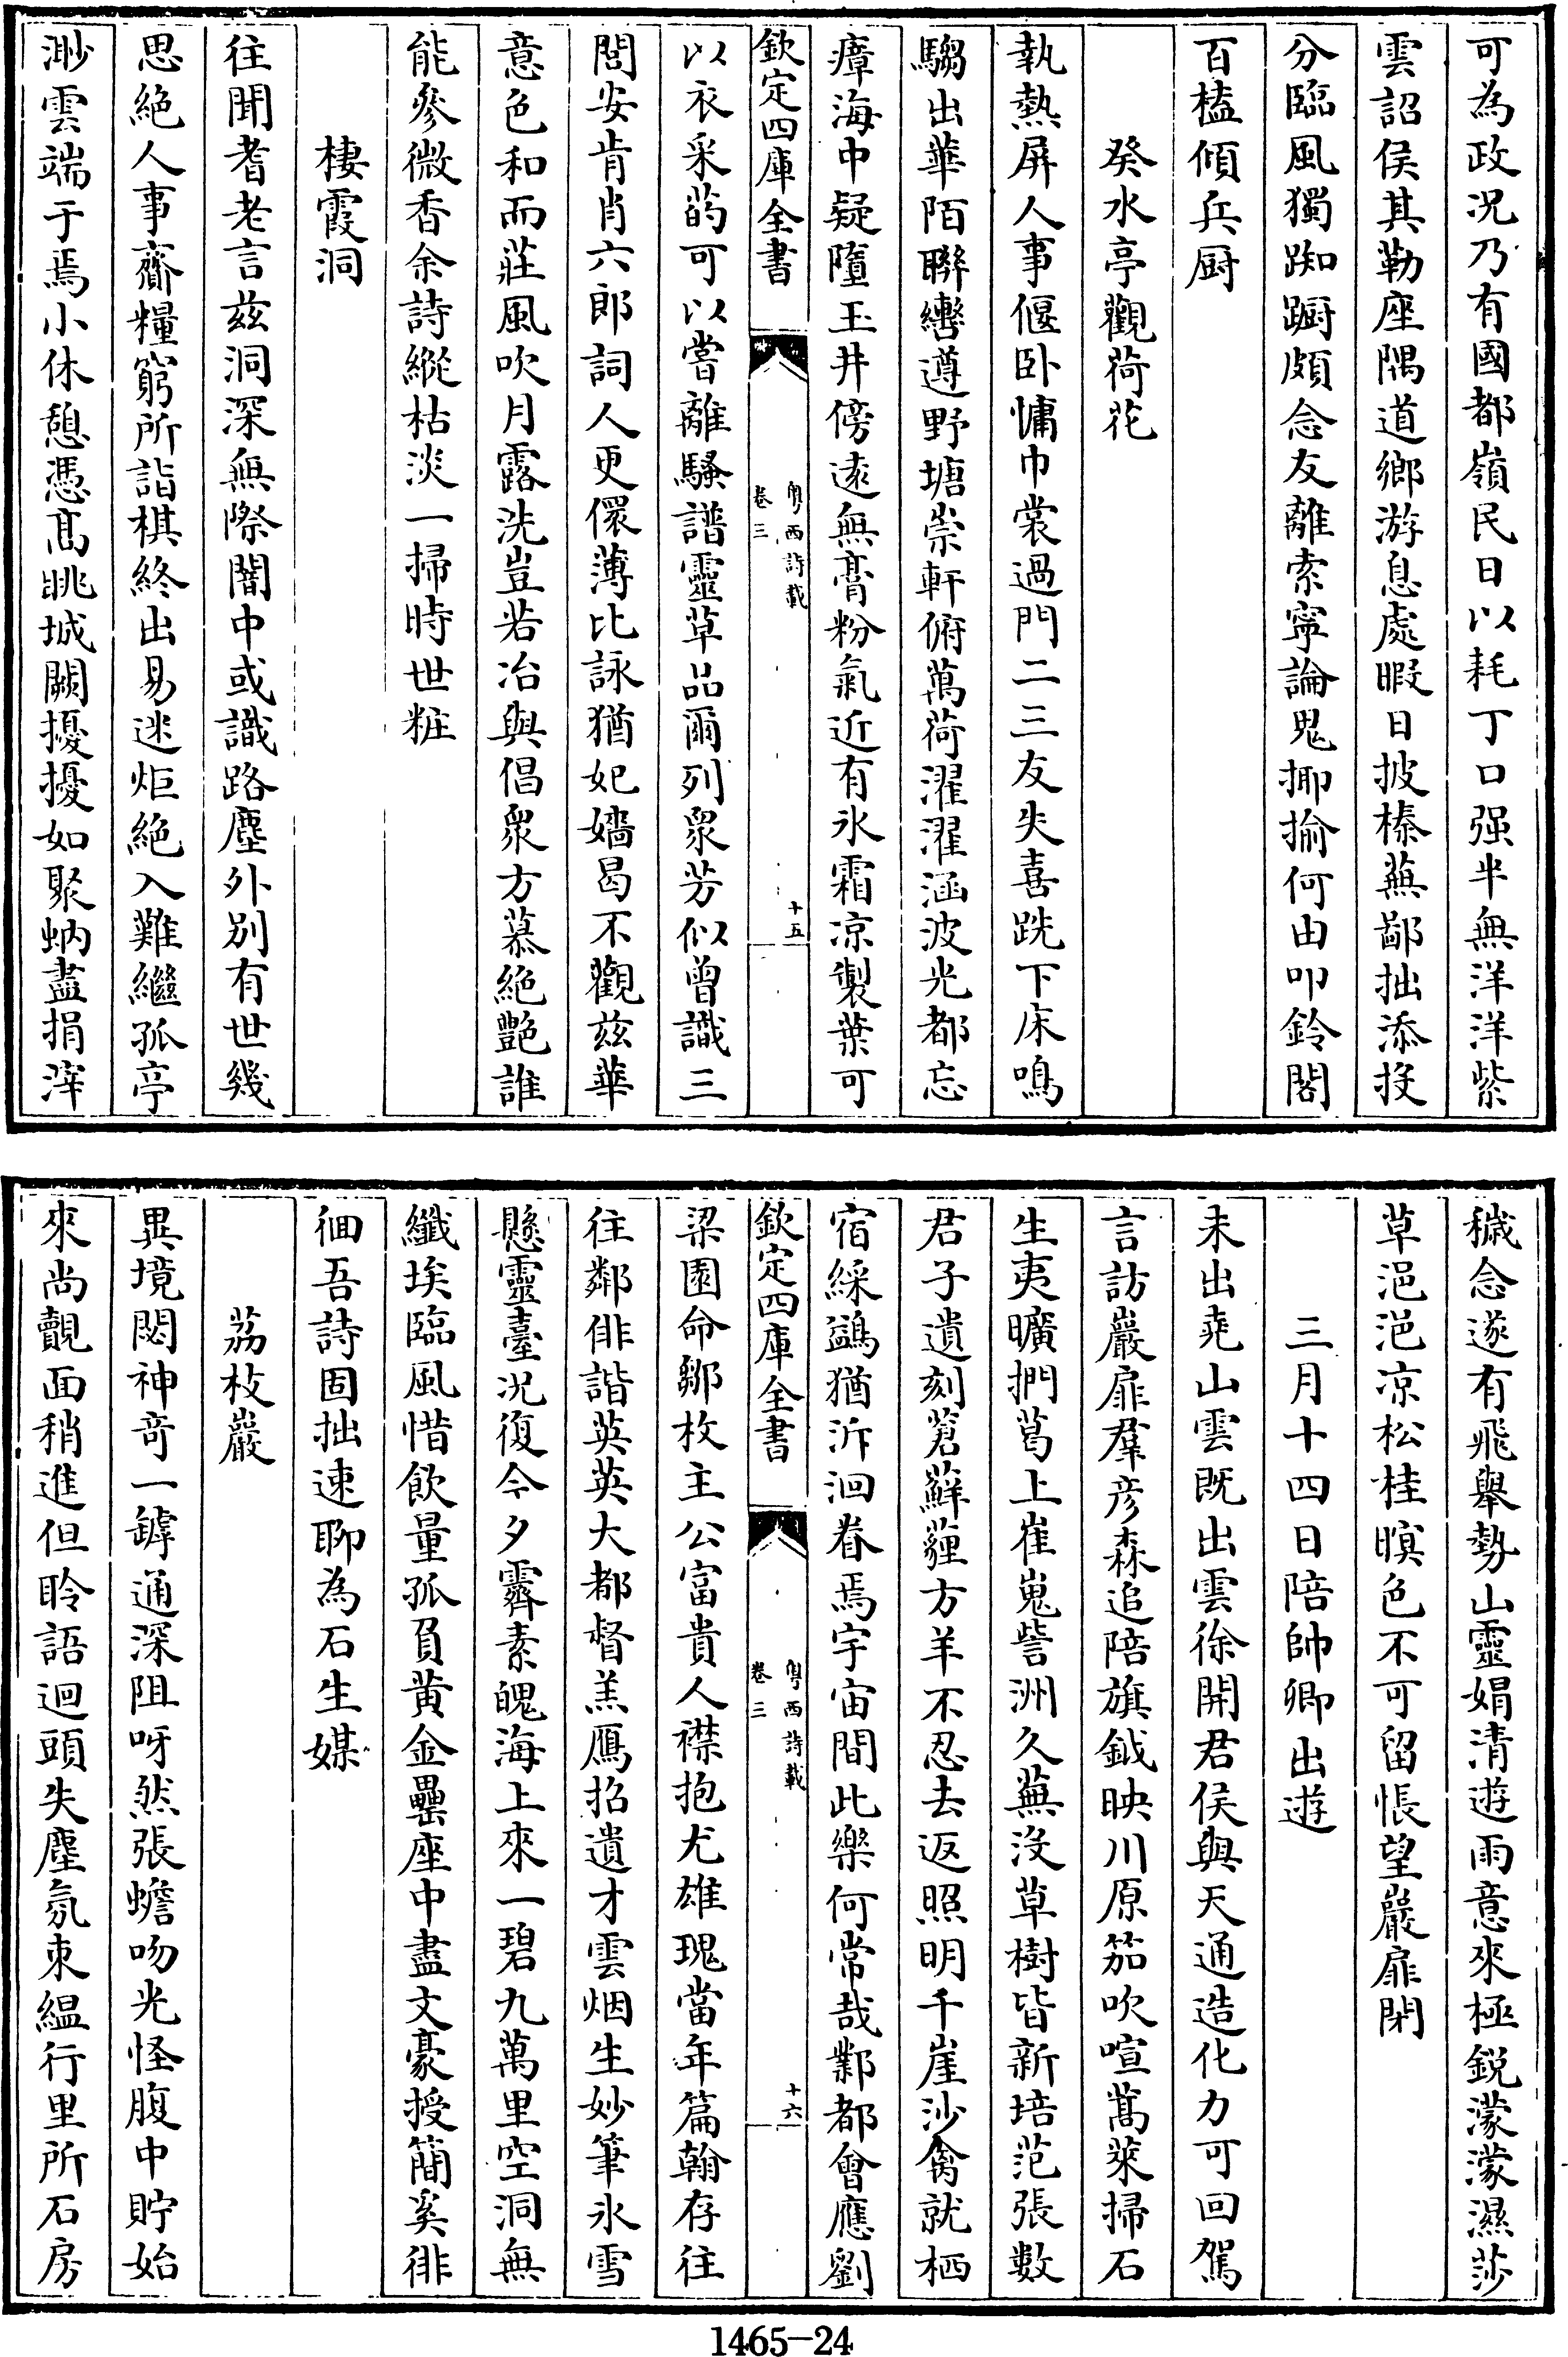 可為政况乃有國都嶺民日以耗丁口强半無洋洋紫
雲詔侯其勒座隅道鄉游息處暇日披榛蕪鄙拙添投
分臨風獨踟蹰頗念友離索寜論鬼揶揄何由叩鈴閣
百榼傾兵厨
癸水亭觀荷花
執熱屏人事偃卧慵巾裳過門二三友失喜跣下床鳴
騶出華陌聨轡遵野塘崇軒俯萬荷濯濯涵波光都忘
瘴海中疑墮玉井傍逺無膏粉氣近有氷霜凉製葉可
欽定四庫全書
粤西詩載
卷三
十五
以衣采菂可以嘗離騷譜靈草品爾列衆芳似曾識三
閭安肯肖六郎詞人更儇薄比詠猶妃嬙曷不觀兹華
意色和而莊風吹月露洗豈若冶與倡衆方慕絶艷誰
能參微香余詩縱枯淡一掃時世粧
棲霞洞
往聞耆老言兹洞深無際闇中或識路塵外别有世幾
思絶人事齎糧窮所詣棋終出易迷炬絶入難繼孤亭
渺雲端于焉小休憩憑髙眺城闕擾擾如聚蚋盡捐滓
穢念遂有飛舉勢山靈娟清遊雨意來極鋭濛濛濕莎
草浥浥凉松桂暝色不可留悵望巖扉閉
三月十四日陪帥卿出遊
未出堯山雲既出雲徐開君侯與天通造化力可回駕
言訪巖扉羣彦森追陪旗鉞映川原笳吹喧蒿萊掃石
生夷曠捫葛上崔嵬訾洲久蕪没草樹皆新培范張數
君子遺刻蒼蘚薶方羊不忍去返照明千崖沙禽就栖
宿綵鷁猶泝洄眷焉宇宙間此樂何常哉鄴都會應劉
欽定四庫全書
粤西詩載
卷三
十六
梁園命鄒枚主公富貴人襟抱尤雄瑰當年篇翰存往
往鄰俳諧英英大都督羔鴈招遺才雲烟生妙筆氷雪
懸靈臺况復今夕霽素魄海上來一碧九萬里空洞無
纎埃臨風惜飲量孤負黄金罍座中盡文豪授簡奚徘
徊吾詩固拙速聊為石生媒
荔枝巖
異境閟神竒一罅通深阻呀然張蟾吻光怪腹中貯始
來尚覿面稍進但聆語迴頭失塵氛束緼行里所石房
1465-24